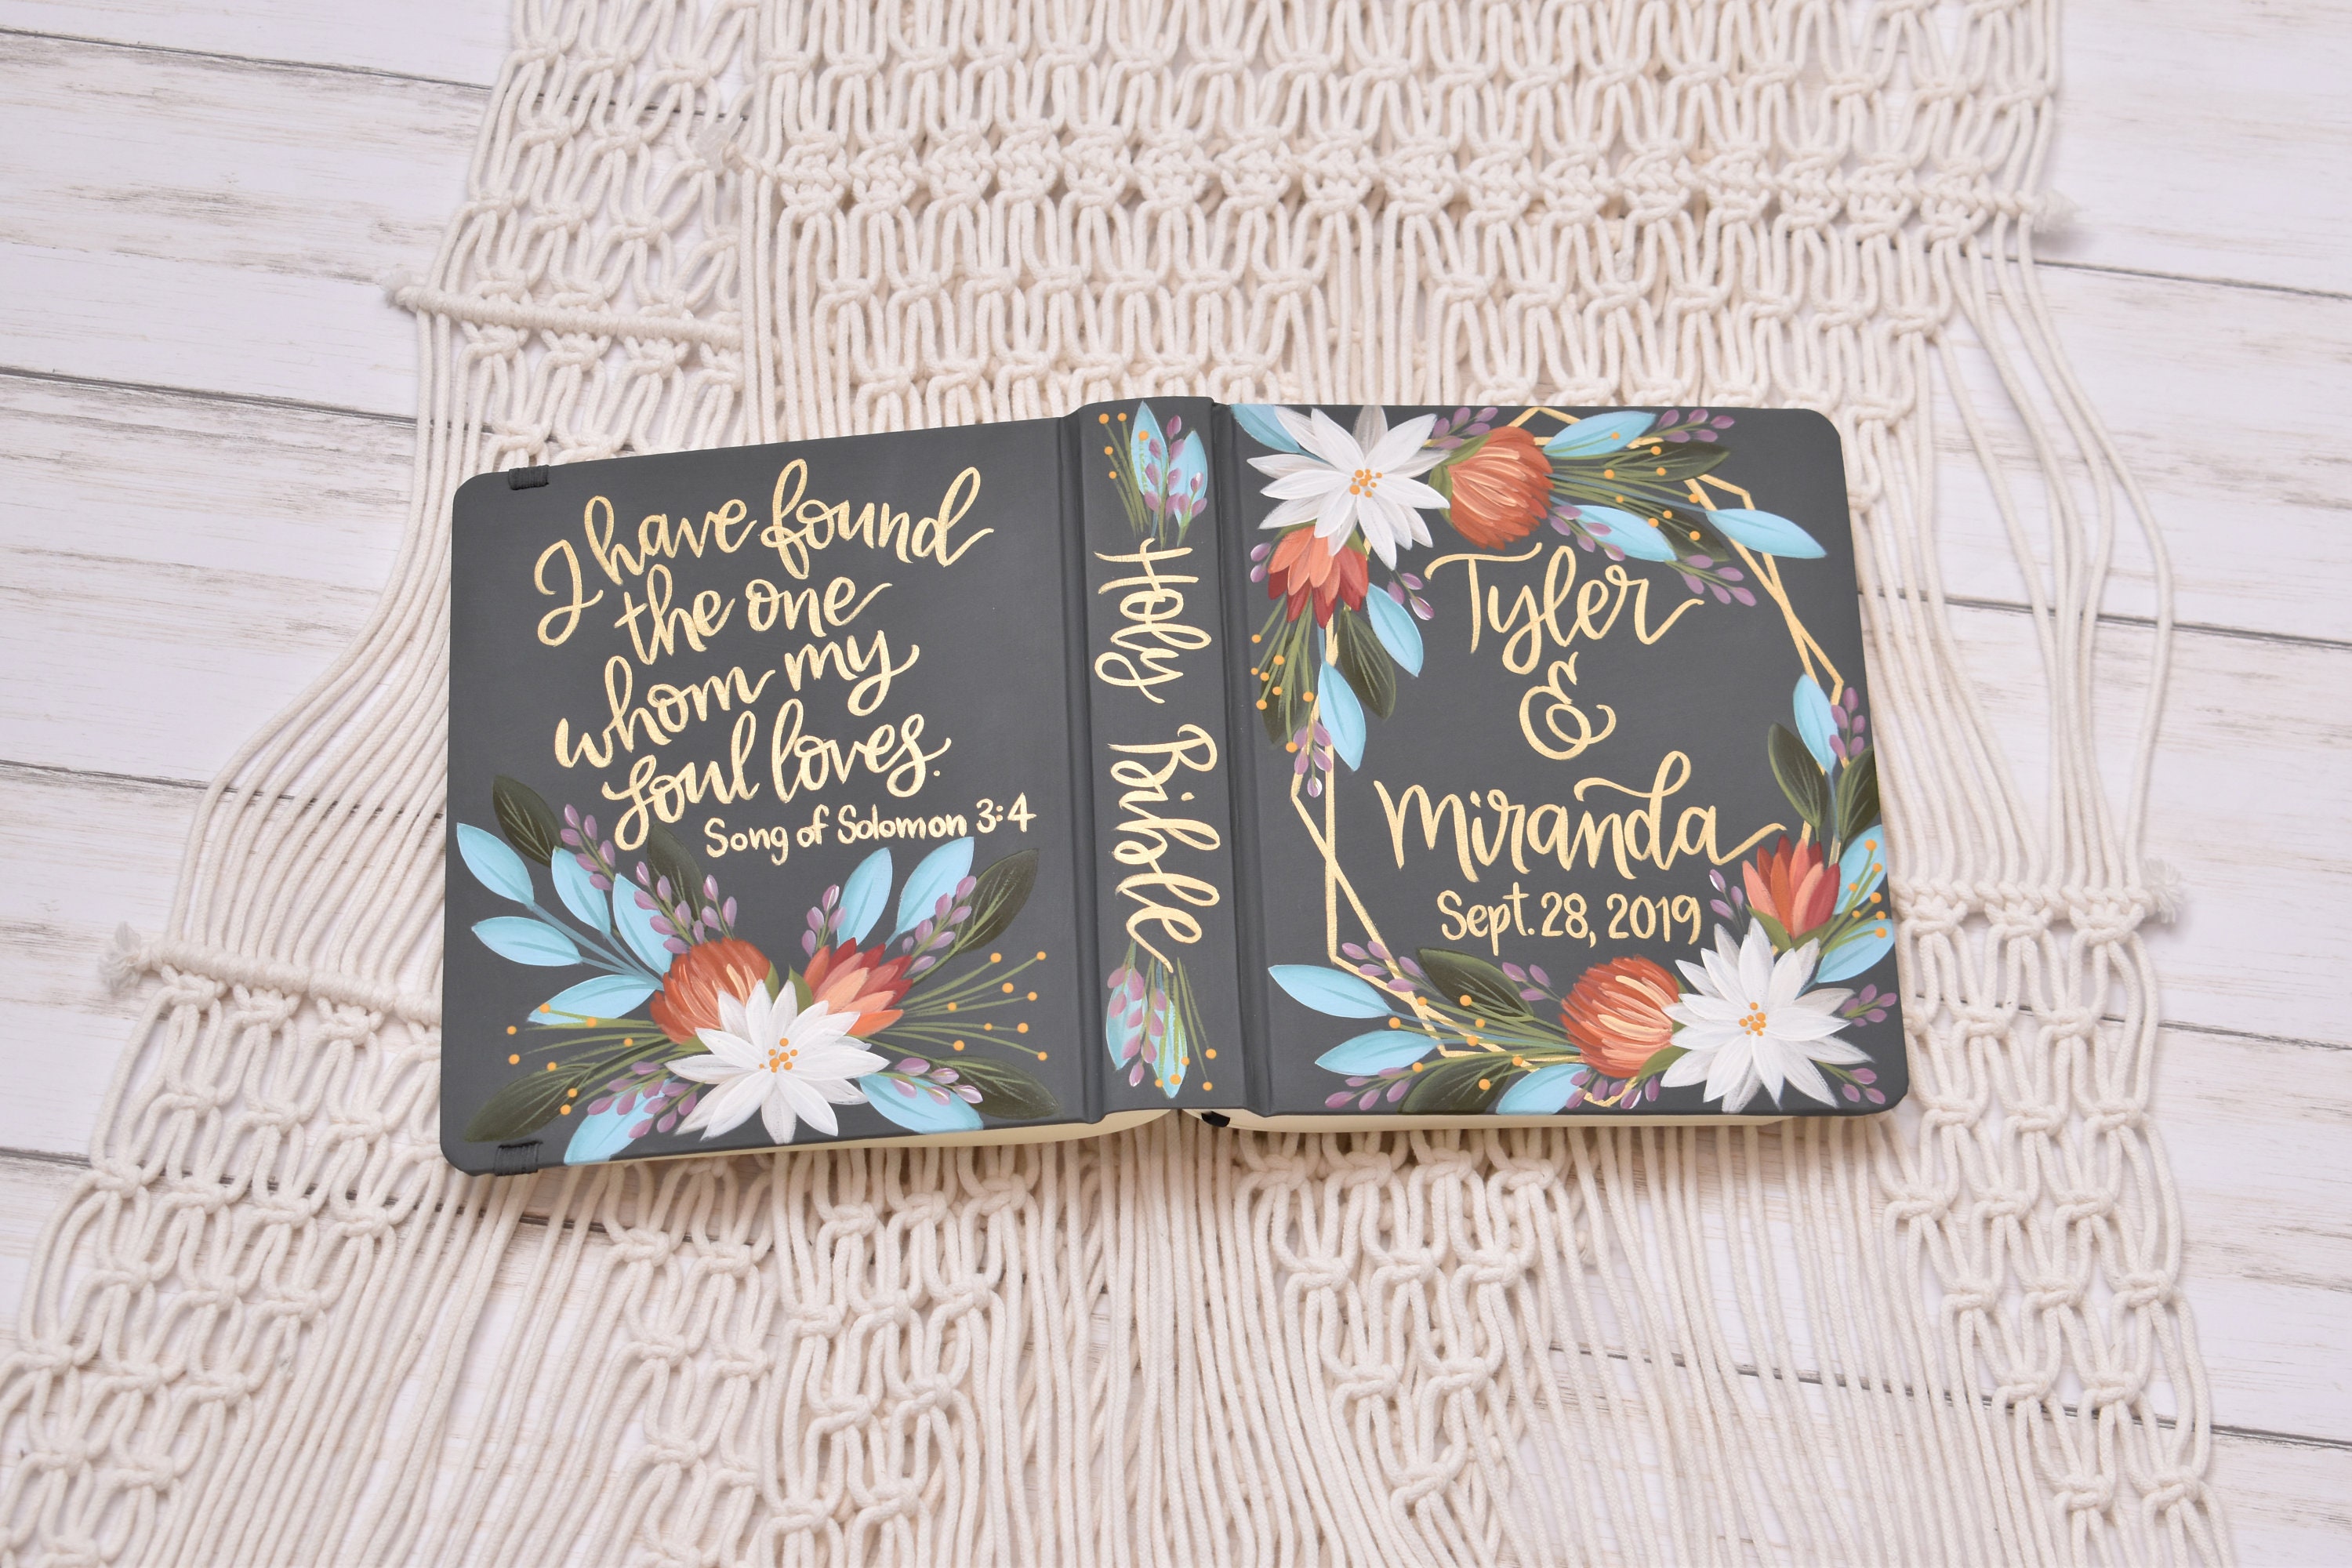 I have found
the one
whom my
soul loves.
Song of Solomon 3:4
Holy Bible
Tyler
&
Miranda
Sept. 28, 2019